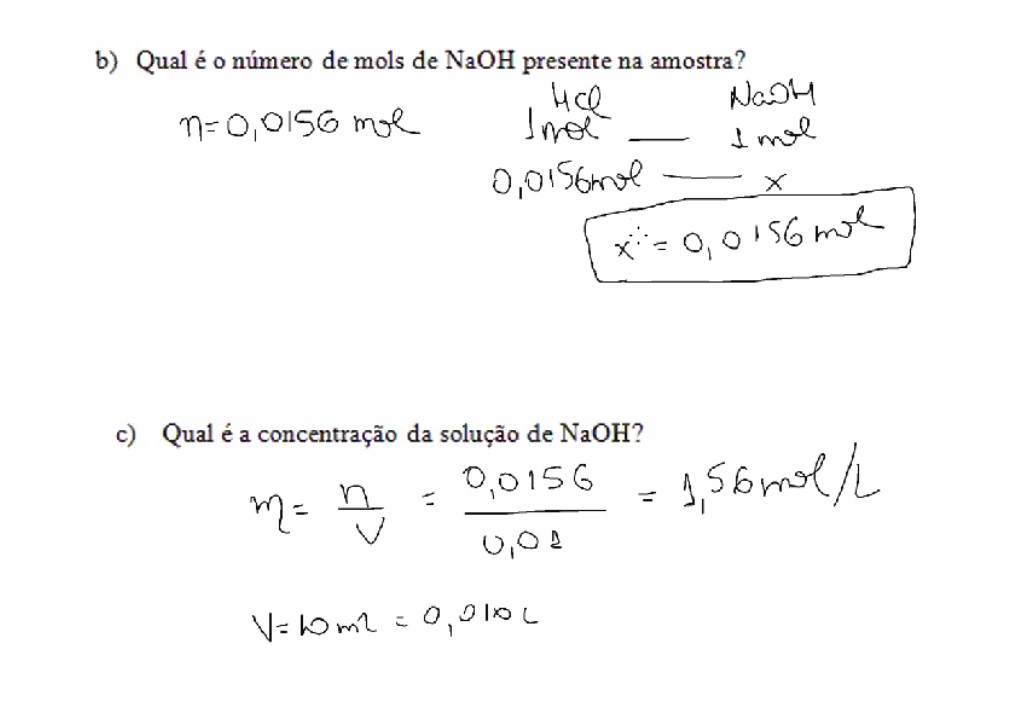 b) Qual é o número de mols de NaOH presente na amostra?
n=0,0156 mol
HCl NaOH
1mol — 1 mol
0,0156mol — x
x∴= 0,0156 mol
c) Qual é a concentração da solução de NaOH?
m= n/V = 0,0156/0,01 = 1,56mol/L
V=10 ml = 0,010 L